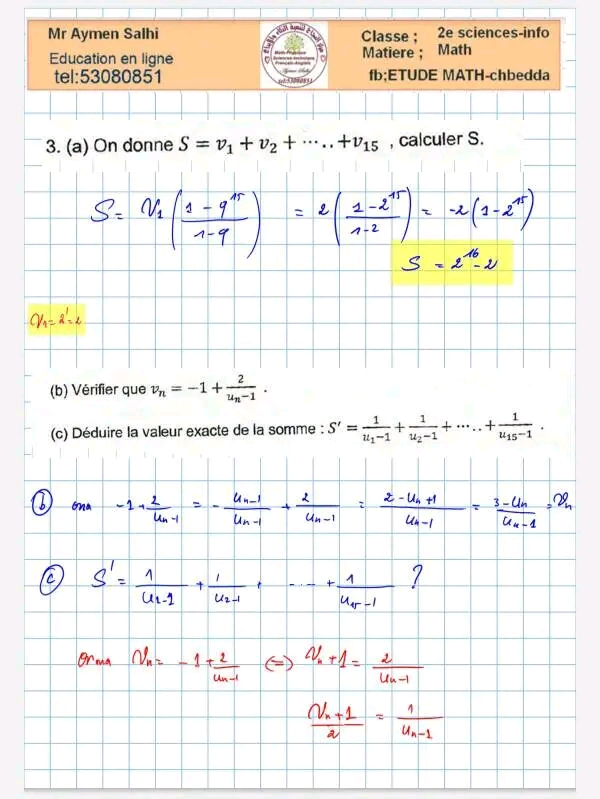 Mr Aymen Salhi
Education en ligne
tel:53080851
Classe ; 2e sciences-info
Matiere ; Math
fb;ETUDE MATH-chbedda
3. (a) On donne S = v₁ + v₂ + ⋯.. +v₁₅ , calculer S.
S = V₁ ( (1 - q¹⁵)/(1-q) ) = 2 ( (1-2¹⁵)/(1-2) ) = -2 (1-2¹⁵)
S = 2¹⁶-2
V₁ = 2¹ = 2
(b) Vérifier que vₙ = −1 + 2/(uₙ−1) .
(c) Déduire la valeur exacte de la somme : S′ = 1/(u₁−1) + 1/(u₂−1) + ⋯.. + 1/(u₁₅−1) .
b) ona -1+ 2/(uₙ-1) = - (uₙ-1)/(uₙ-1) + 2/(uₙ-1) = (2-uₙ+1)/(uₙ-1) = (3-uₙ)/(uₙ-1) = Vₙ
c) S' = 1/(u₁-1) + 1/(u₂-1) + ---- + 1/(u₁₅-1) ?
Or ona Vₙ = -1+ 2/(uₙ-1) (=) Vₙ+1 = 2/(uₙ-1)
(Vₙ+1)/2 = 1/(uₙ-1)